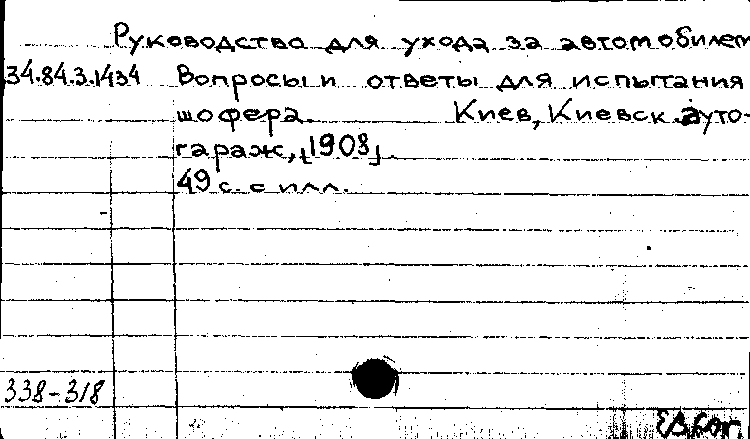 Руководства для ухода за автомобилем
34.84.3.1434 Вопросы и ответы для испытания
шофера. Киев, Киевск. ауто-
гараж, [1908].
49 с. с илл.
338-318